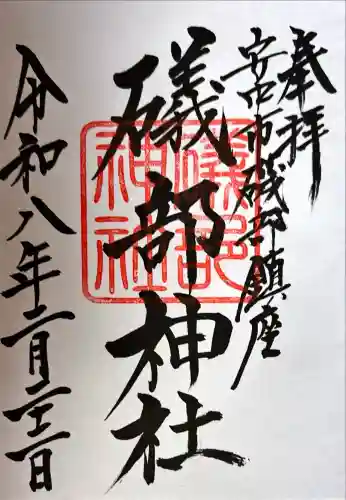 奉拝
安中市磯部鎮座
礒部神社
礒部神社
令和八年二月二十二日